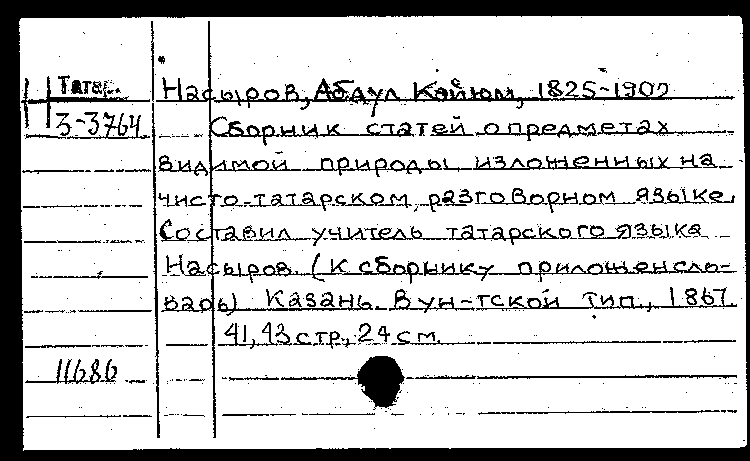 Татар.
Насыров, Абдул Кайюм, 1825-1902
3-3764
Сборник статей о предметах
видимой природы, изложенных на
чисто-татарском разговорном языке.
Составил учитель татарского языка
Насыров. (К сборнику приложен сло-
варь) Казань. В ун-тской тип., 1867.
41, 43 стр., 24 см.
11686